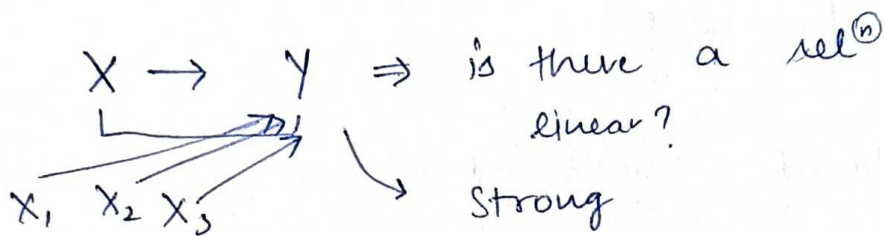 X → Y ⇒ is there a relⁿ
linear?
X₁ X₂ X₃ Strong